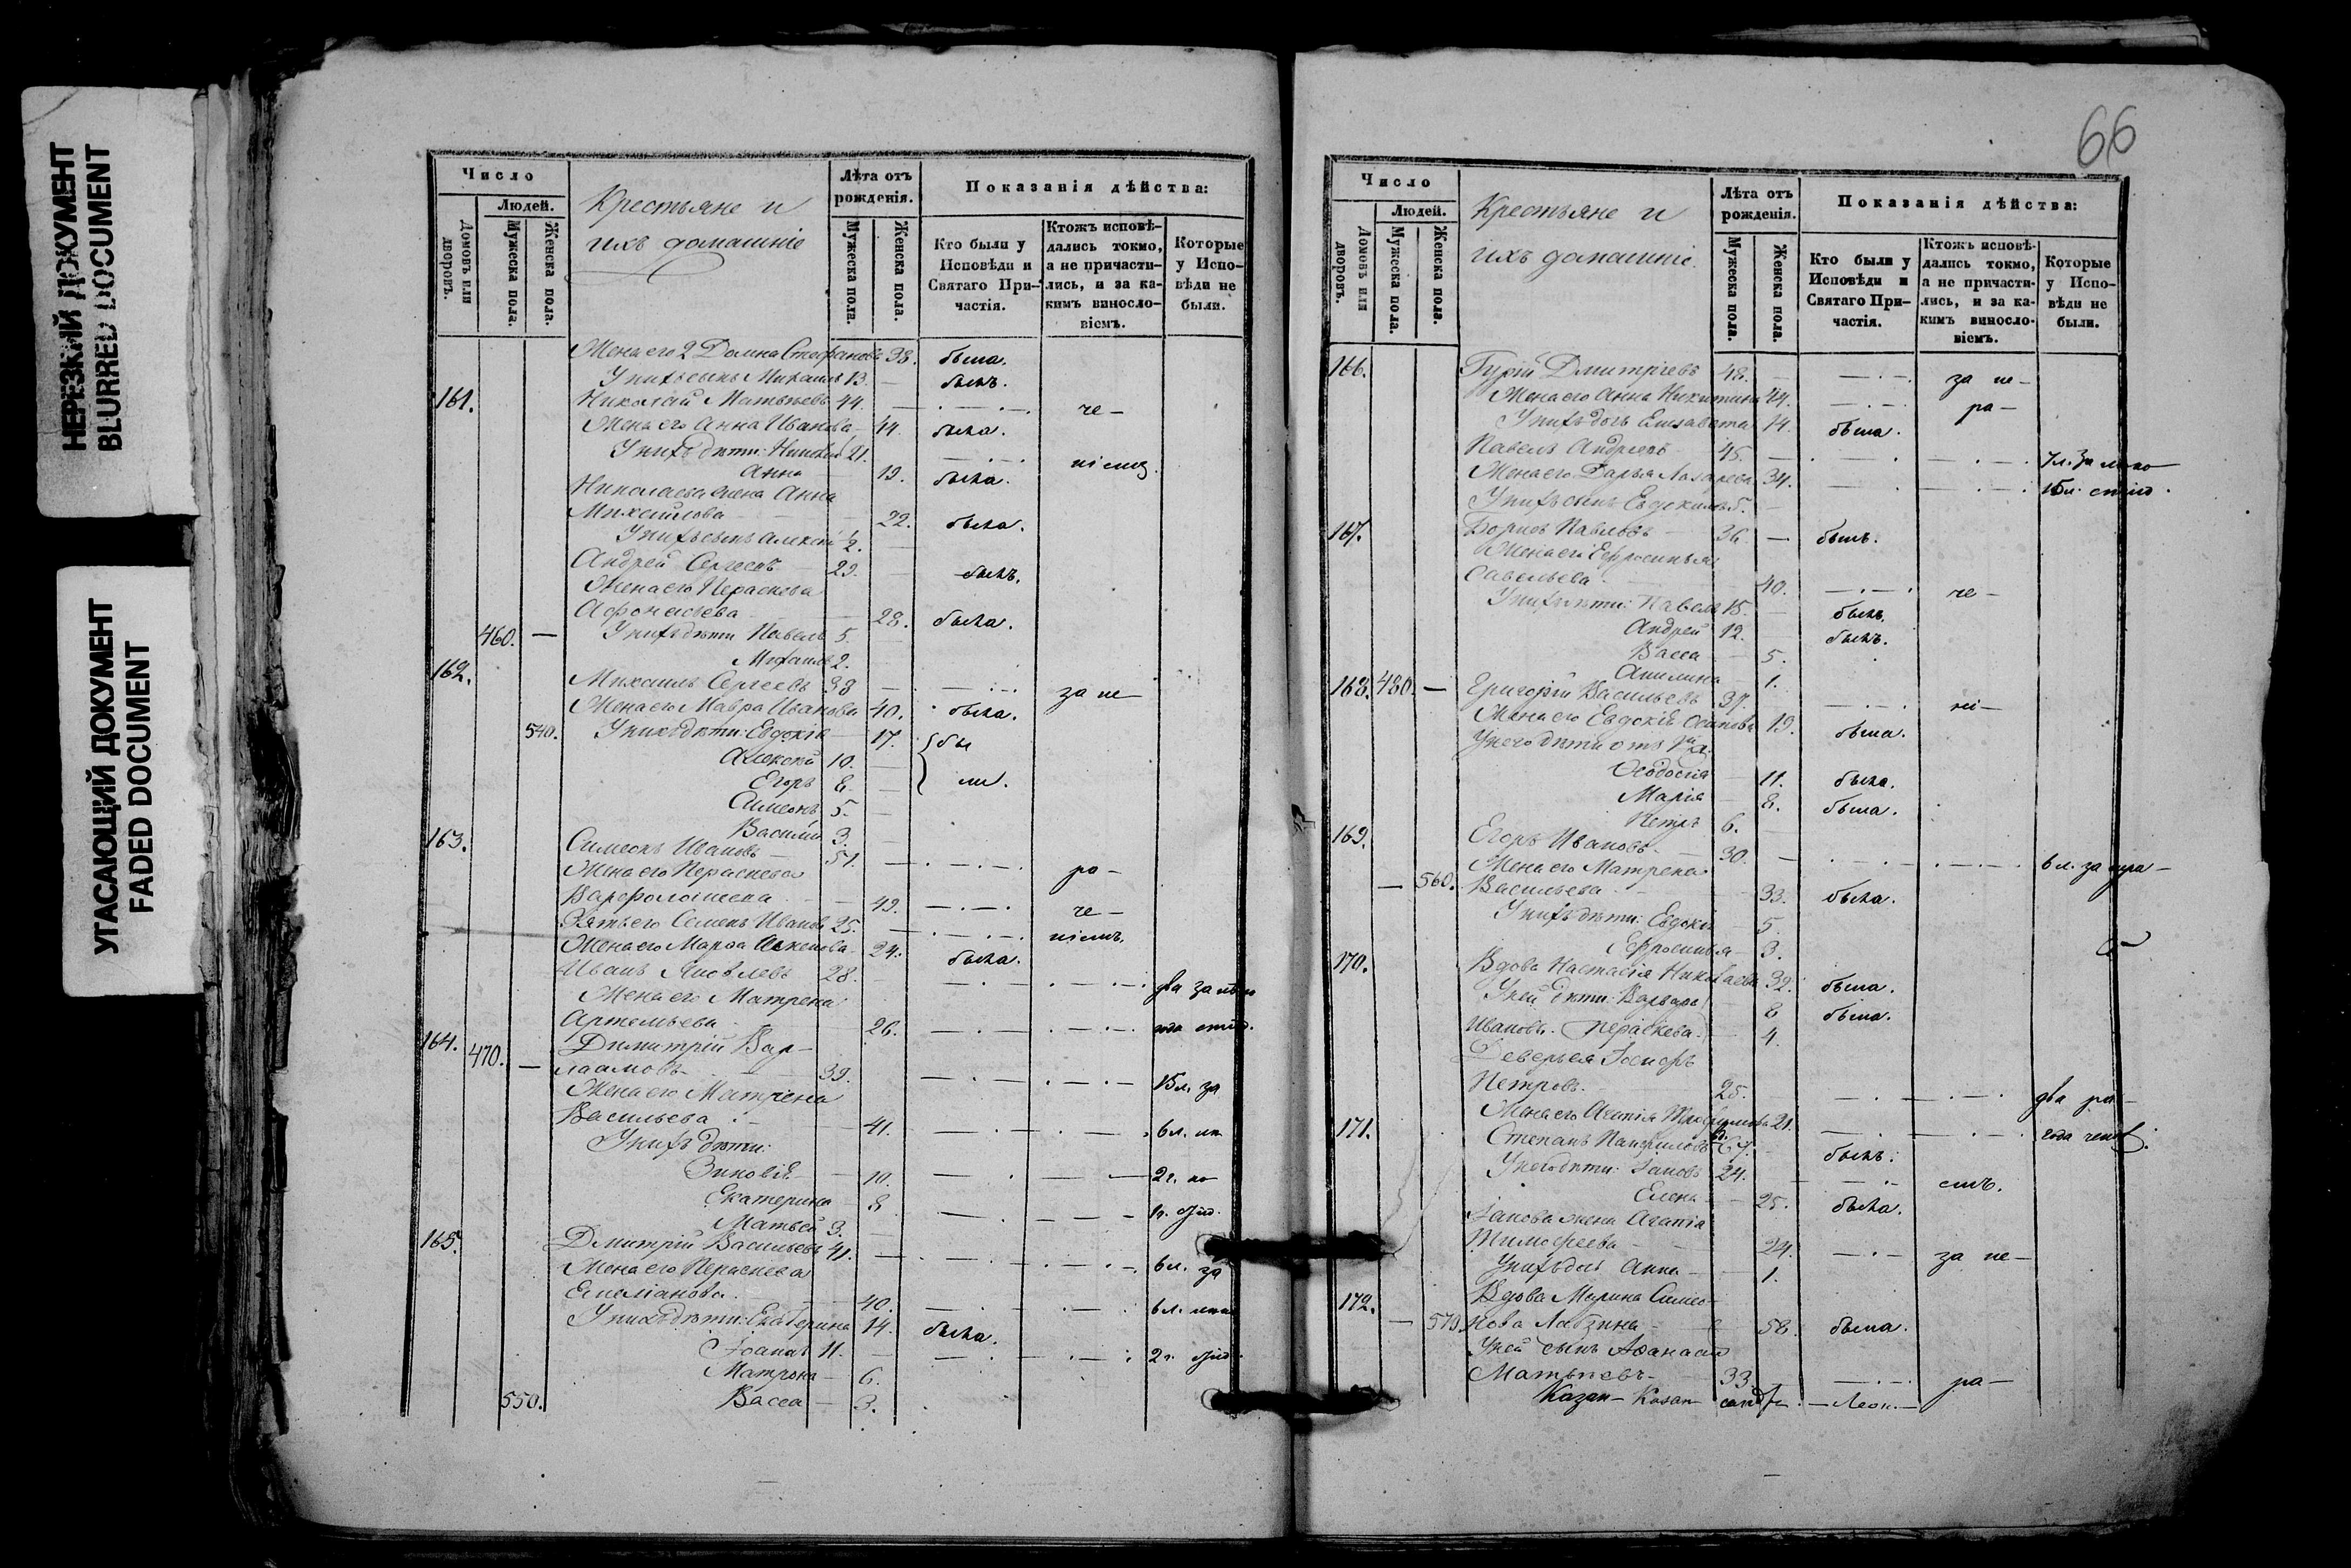 НЕРЕЗКИЙ ДОКУМЕНТ
BLURRED DOCUMENT
УГАСАЮЩИЙ ДОКУМЕНТ
FADED DOCUMENT
Число
Людей.
Домовъ или дворовъ.
Мужеска пола.
Женска пола.
Крестьяне и
ихъ домашніе
Лѣта отъ
рожденія.
Мужеска пола.
Женска пола.
Показанія дѣйства:
Кто были у
Исповѣди и
Святаго При-
частія.
Ктожъ исповѣ-
дались токмо,
а не причасти-
лись, и за ка-
кимъ винosло-
віемъ.
Которые
у Испо-
вѣди не
были.
Жена его 2 Домна Стефанова 38. была.
У нихъ сынъ Михаилъ 13. — былъ.
161. Николай Матвѣевъ 44. — . — . — . че —
Жена его Анна Иванова — 44. была.
У нихъ дѣти: Николай 21. — . — . ніемъ.
Анна 19. была.
Николаева жена Анна
Михайлова — 22. была.
У нихъ сынъ Алексій ½. —
Андрей Сергеевъ — 29. былъ.
Жена его Параскева
Афонасьева — 28. была.
460. — У нихъ дѣти Павелъ 5. —
Михаилъ 2.
162. Михаилъ Сергеевъ 38 — . — . за не —
Жена его Мавра Иванова 40. была.
540. У нихъ дѣти: Евдокія — 17. { бы
Алексій 10. —
Егоръ 8. — ли.
Симеонъ 5. —
Василій 3. —
163. Симеонъ Ивановъ — 51. — . — . — . ра —
Жена его Параскева
Варфоломеева — 49. — . — . че —
Зять его Семенъ Ивановъ 25. — . — . — . ніемъ.
Жена его Марѳа — 24. была.
Иванъ Яковлевъ 28. — . — . — . — . два за
Жена его Матрена
Артемьева — 26. — . — . — . года
164. 470. — Димитрій Вар-
лаамовъ — 39. — . — . — . — 15 л. за
Жена его Матрена
Васильева — 41. — . — . — 6 л.
У нихъ дѣти:
Зиновія — 10. — . — — 2 г.
Екатерина — 8 — . — — 1 г.
Матвей 3. —
165. Дмитрій Васильевъ 41. — . — . — . — . 6 л. за
Жена его Параскева
Емеліанова — 40. — . — . — . 6 л.
У нихъ дѣти: Екатерина 14. была.
Іоаннъ 11. — — . — . — : 2 г.
Матрона — 6.
550. Васса — 3.
66
Число
Людей.
Домовъ или дворовъ.
Мужеска пола.
Женска пола.
Крестьяне и
ихъ домашніе.
Лѣта отъ
рожденія.
Мужеска пола.
Женска пола.
Показанія дѣйства:
Кто были у
Исповѣди и
Святаго При-
частія.
Ктожъ исповѣ-
дались токмо,
а не причасти-
лись, и за ка-
кимъ винoсло-
віемъ.
Которые
у Испо-
вѣди не
были.
166. Гурій Дмитріевъ 48. — — . — . за не —
Жена его Анна Никитина 44. — . — . ра —
У нихъ дочь Елизавета 14. была.
Павелъ Андреевъ 45. — . — . — . 7 л. за
Жена его Дарья Лазарева 34. — . — . 15 л.
У нихъ сынъ Евдокимъ 5. —
167. Борисъ Павловъ — 36 — былъ.
Жена его Ефросинья
Савельева — 40. — . — . че —
У нихъ дѣти: Павелъ 15. — былъ.
Андрей 12. — былъ.
Васса — 5.
Акилина — 1.
168. 480. — Григорій Васильевъ 37. — . — . ні —
Жена его Евдокія Осипова 19. была.
У него дѣти отъ 1й
Ѳеодосія — 11. была.
Марія — 8. была.
Петръ 6.
169. Егоръ Ивановъ — 30. — . — . — . — . — . 6 л. за
Жена его Матрена
— 560. Васильева — 33. была.
У нихъ дѣти: Евдокія — 5.
Ефросинья — 3.
170. Вдова Настасія Николаева 32. была.
У ней дѣти: Варвара — 8 была.
Ивановы. Параскева. — 4.
Деверь ея Іосифъ
Петровъ. — 25. — . — . — . два ра —
Жена его Агапія Трофимова 21. — . — . года
171. Степанъ Панфиловъ 67. былъ.
У него дѣти: Іаковъ 24. — — . — емъ.
Елена — 25. была.
Іакова жена Агапія
Тимофеева — 24. — . — за не —
У нихъ дочь Анна — 1.
172. Вдова Марина Симео-
— 570. нова Лабзина — 58. была.
У ней сынъ Аѳанасій
Матвѣевъ — 33. — — . — . ра —